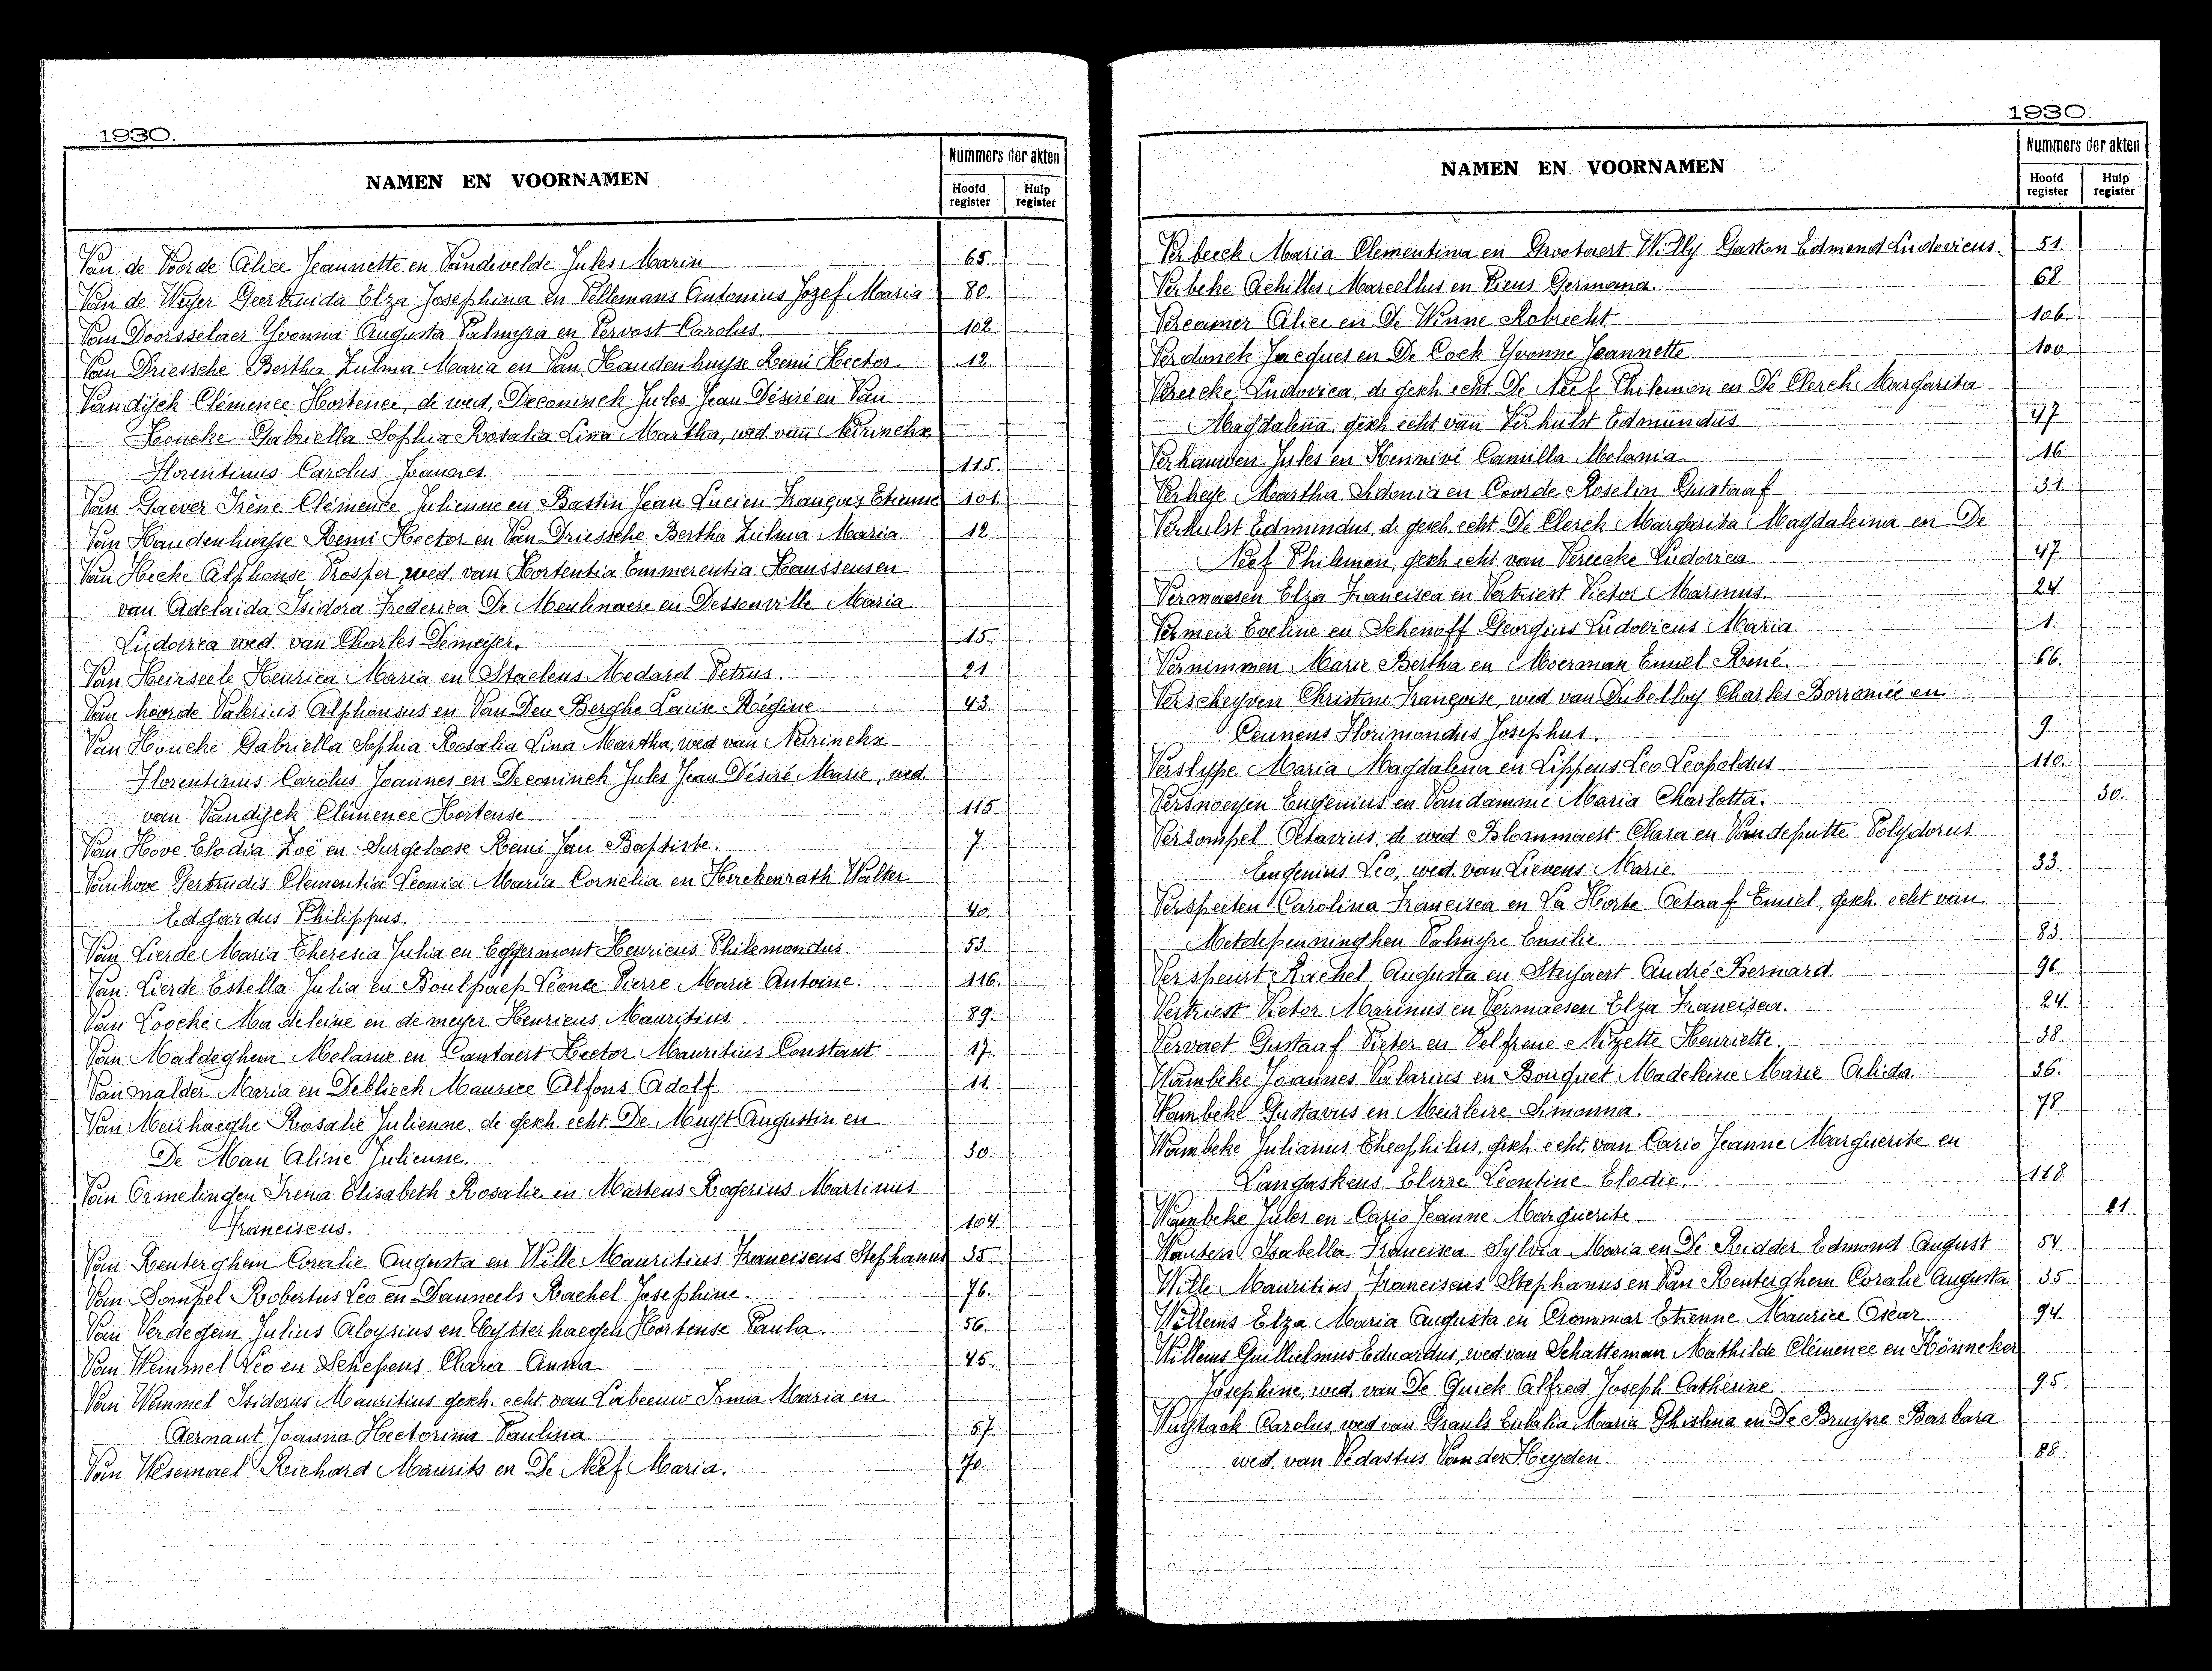 1930.
NAMEN EN VOORNAMEN
Nummers der akten
Hoofd register
Hulp register
Van de Voorde Alice Jeannette en Vandevelde Jules Marin 65
Van de Weyer Geertruida Elza Josephina en Pellemans Antonius Jozef Maria 80.
Van Doorsselaer Yvonna Augusta Palmyra en Pervost Carolus 102
Van Driessche Bertha Zulma Maria en Van Haudenhuyse Remi Hector 12.
Vandijck Clémence Hortence, de wed. Deconinck Jules Jean Désiré en Van
Houcke Gabriella Sophia Rosalia Lina Martha, wed van Neirinckx
Florentinus Carolus Joannes 115.
Van Gaever Irène Clémence Julienne en Bastin Jean Lucien François Etienne 101.
Van Haudenhuyse Remi Hector en Van Driessche Bertha Zulma Maria 12.
Van Hecke Alphonse Prosper, wed. van Hortentia Emmerentia Haussensen
van Adelaïda Isidora Frederica De Meulenaere en Dessonville Maria
Ludovica wed. van Charles Demeyer. 15.
Van Heirseele Henrica Maria en Staelens Medard Petrus. 21
Van hoorde Valerius Alphonsus en Van Den Berghe Louise Régine. 43.
Van Houcke Gabriella Sophia Rosalia Lina Martha, wed van Neirinckx
Florentinus Carolus Joannes en Deconinck Jules Jean Désiré Marie, wed.
van Vandijck Clémence Hortense 115.
Van Hove Elodia Zoë en Surgeloose Remi Jan Baptiste. 7
Vanhove Gertrudis Clementia Leonia Maria Cornelia en Herckenrath Walter
Edgardus Philippus. 40.
Van Lierde Maria Theresia Julia en Eggermont Henricus Philemondus 53.
Van Lierde Estella Julia en Boulpaep Léonce Pierre Marie Antoine. 116.
Van Loocke Madeleine en de meyer Henricus Mauritius 89.
Van Maldeghem Melanie en Cantaert Hector Mauritius Constant 17
Van malder Maria en Deblieck Maurice Alfons Adolf 11.
Van Meirhaeghe Rosalie Julienne, de gesch. echt. De Muyt Augustin en
De Man Aline Julienne. 30.
Van Ormelingen Irena Elisabeth Rosalie en Martens Rogerius Martinus
Franciscus. 104.
Van Renterghem Coralie Augusta en Wille Mauritius Franciscus Stephanus 35.
Van Sompel Robertus Leo en Dauneels Rachel Josephine. 76.
Van Verdegem Julius Aloysius en Uytterhaegen Hortense Paula. 56.
Van Wemmel Leo en Schepens Clara Anna 45.
Van Wemmel Isidorus Mauritius gesch. echt. van Labeeuw Irma Maria en
Aernaut Joanna Hectorina Paulina 57.
Van Wesemael Richard Maurits en De Neef Maria. 70.
1930.
NAMEN EN VOORNAMEN
Nummers der akten
Hoofd register
Hulp register
Verbeeck Maria Clementina en Grootaert Willy Gaston Edmond Ludovicus. 51.
Verbeke Achilles Marcellus en Pieus Germana. 68.
Vercamer Alice en De Winne Robrecht 106.
Verdonck Jacques en De Cock Yvonne Jeannette 100.
Vereecke Ludovica, de gesch echt. De Neef Philemon en De Clerck Margarita
Magdalena, gesch. echt van Verhulst Edmundus. 47
Verhauwen Jules en Kennivé Camilla Melania 16
Verheye Martha Sidonia en Coorde Roselin Gustaaf 31.
Verhulst Edmundus, de gesch. echt. De Clerck Margarita Magdaleina en De
Neef Philemon, gesch echt van Vereecke Ludovica 47.
Vermaesen Elza Francisca en Vertriest Victor Marinus. 24
Vermeir Eveline en Schenoff Georgius Ludovicus Maria. 1.
Vernimmen Marie Bertha en Moerman Emiel René. 66.
Verscheyven Christine Françoise, wed van Dubelloy Charles Borromée en
Ceunens Florimondus Josephus. 9.
Verslype Maria Magdalena en Lippens Leo Leopoldus. 110.
Versnoeyen Eugenius en Vandamme Maria Charlotta. 30.
Versompel Octavius, de wed Blommaert Clara en Vandeputte Polydorus
Eugenius Leo, wed. van Lievens Marie 33.
Verspeeten Carolina Francisca en La Horte Octaaf Emiel, gesch. echt van
Metdepenninghen Palmyre Emilie. 83.
Verspeurt Rachel Augusta en Steyaert André Bernard 96
Vertriest Victor Marinus en Vermaesen Elza Francisca. 24.
Vervaet Gustaaf Pieter en Pelfrene Nizette Henriette. 38.
Wambeke Joannes Valarius en Bouquet Madeleine Marie Alida. 36.
Wambeke Gustavus en Meirleire Simonna. 78.
Wambeke Julianus Theophilus, gesch. echt. van Cario Jeanne Marguerite en
Langaskens Elvire Léontine Elodie. 118.
Wambeke Jules en Cario Jeanne Marguerite 21.
Wauters Isabella Francisca Sylvia Maria en De Ridder Edmond August 54.
Wille Mauritius Franciscus Stephanus en Van Renterghem Coralie Augusta 35.
Willems Elza Maria Augusta en Crommar Etienne Maurice Oscar 94.
Willems Guillielmus Eduardus, wed van Schatteman Mathilde Clémence en Hönneker
Josephine, wed. van De Quick Alfred Joseph Cathérine. 95.
Wuytack Carolus, wed van Grauls Eulalia Maria Ghislena en De Bruyne Barbara
wed. van Vedastus Van der Heyden. 88.